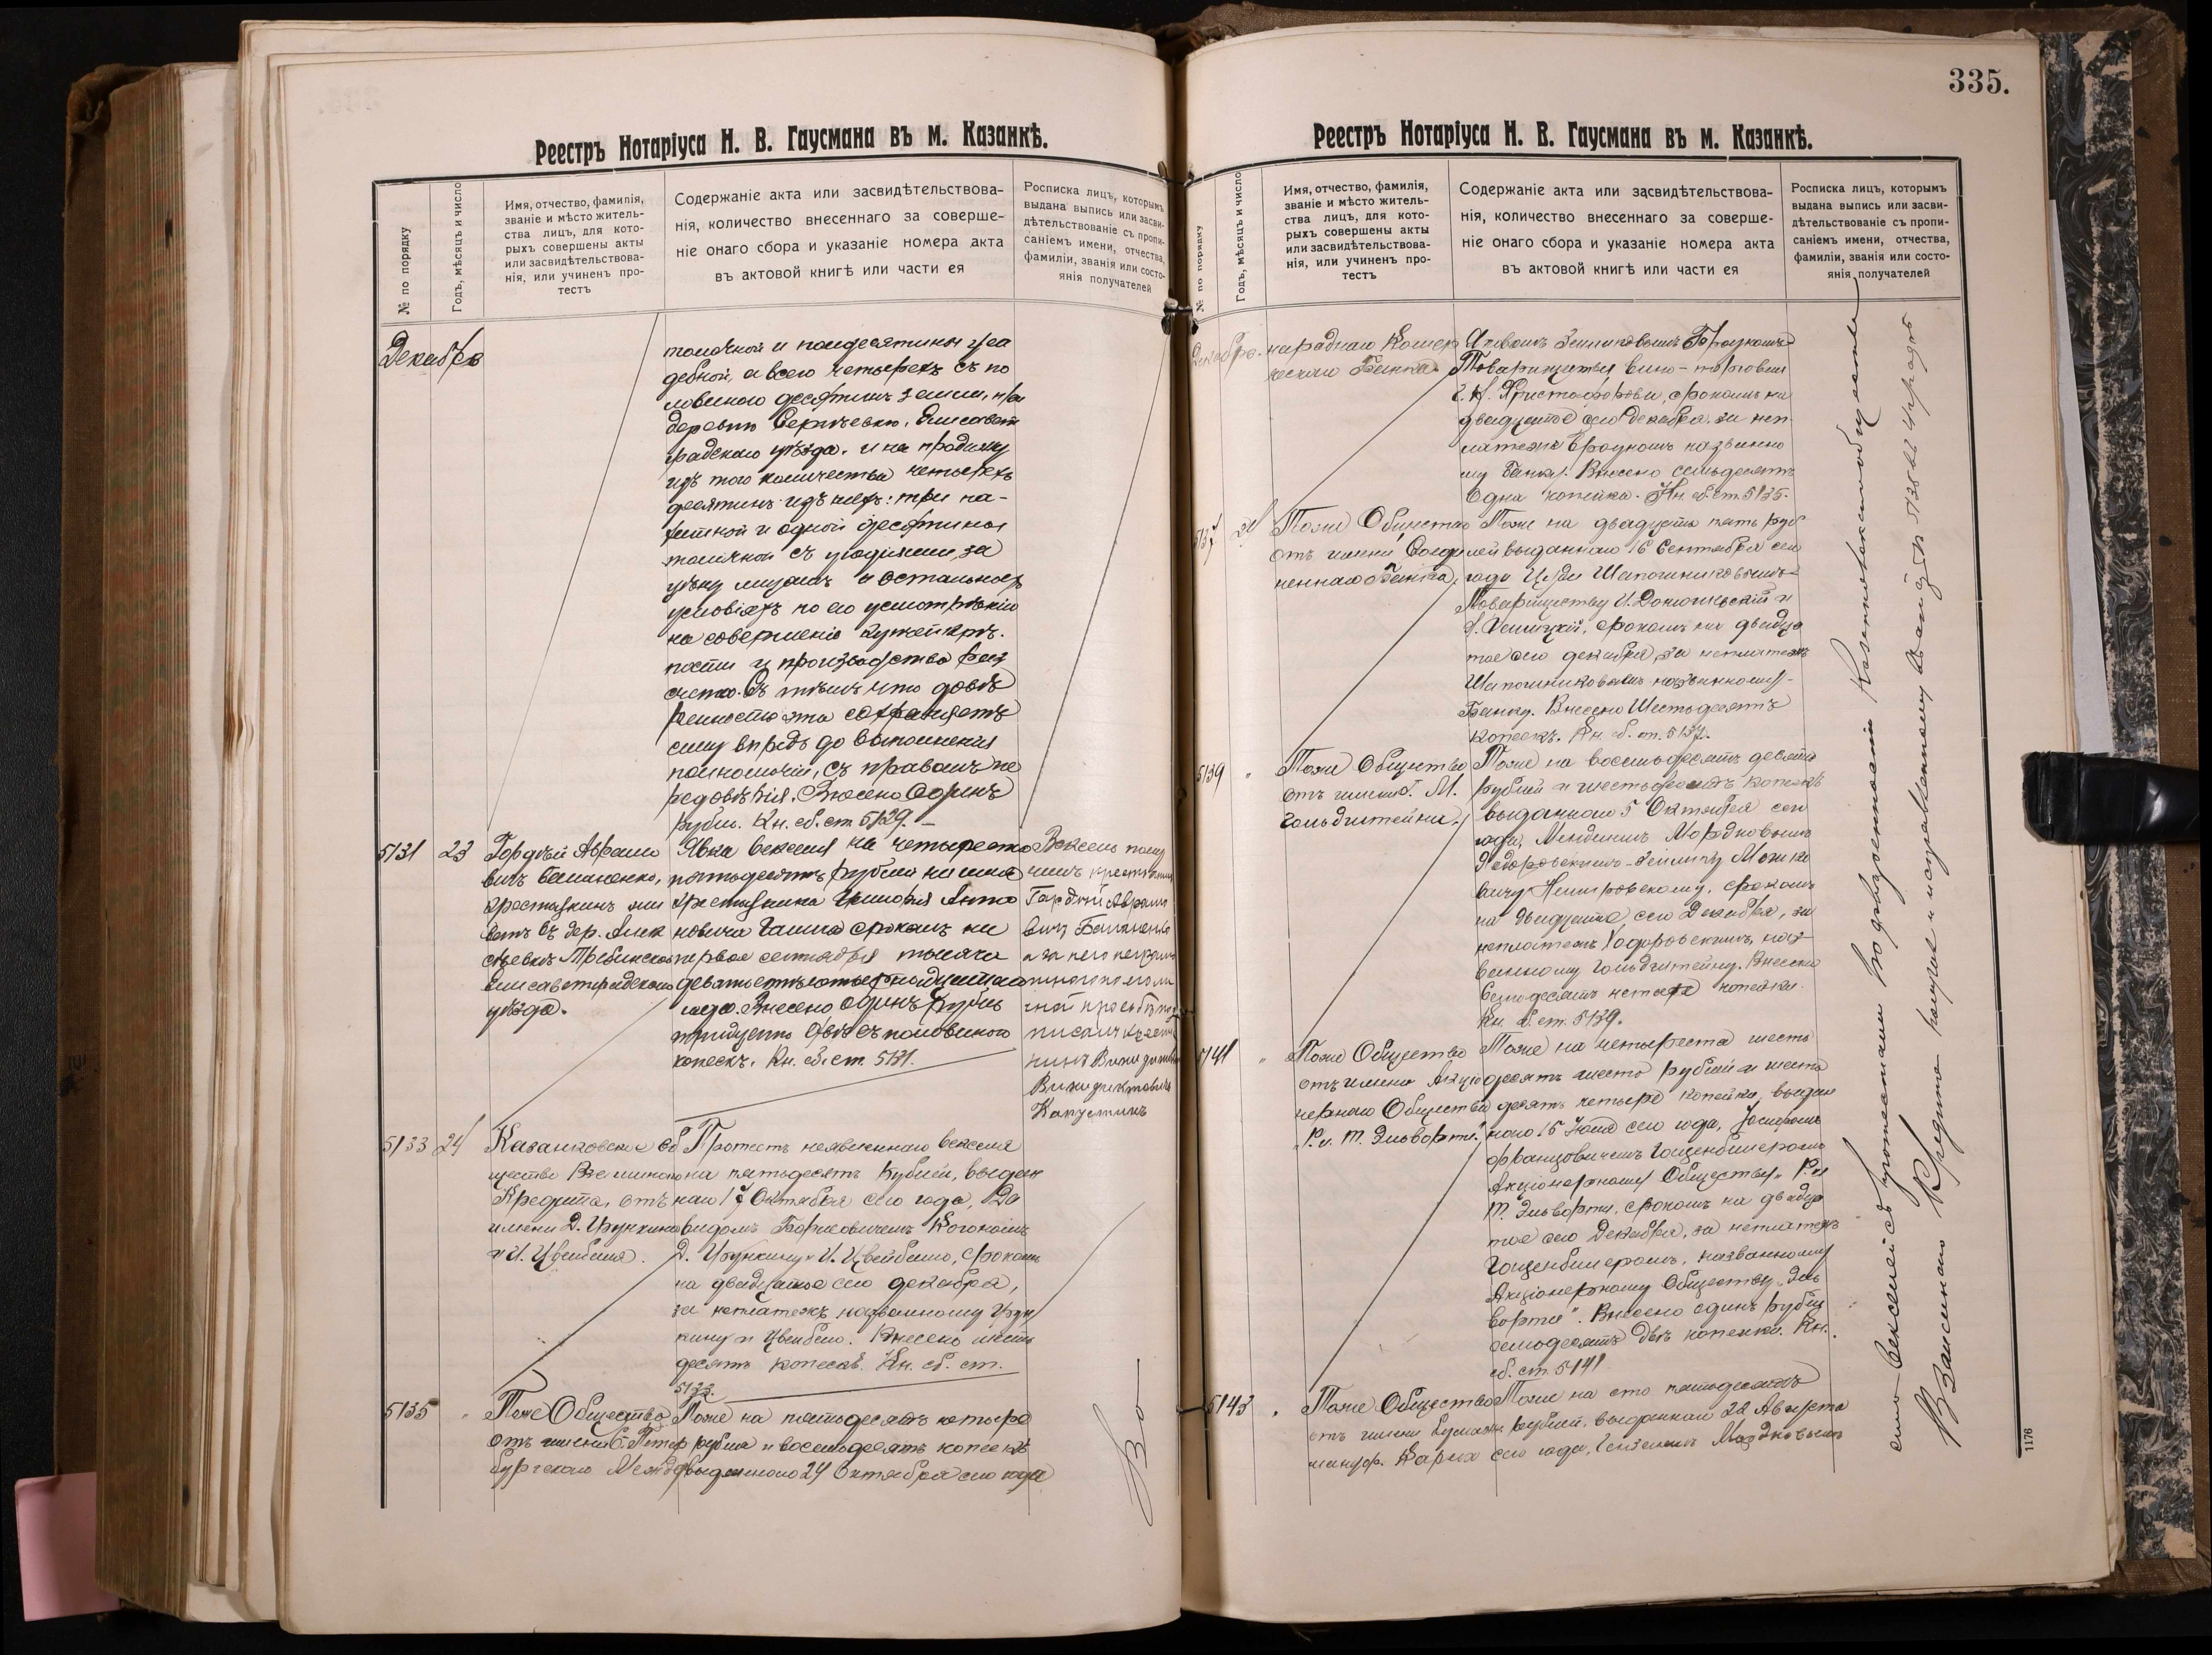 Реестръ Нотаріуса Н. В. Гаусмана въ м. Казанкѣ.
№ по порядку
Годъ, мѣсяцъ и число
Имя, отчество, фамилія,
званіе и мѣсто житель-
ства лицъ, для кото-
рыхъ совершены акты
или засвидѣтельствова-
нія, или учиненъ про-
тестъ
Содержаніе акта или засвидѣтельствова-
нія, количество внесеннаго за соверше-
ніе онаго сбора и указаніе номера акта
въ актовой книгѣ или части ея
Росписка лицъ, которымъ
выдана выпись или засви-
дѣтельствованіе съ пропи-
саніемъ имени, отчества,
фамиліи, званія или состо-
янія получателей
Декабрь
толочной и полдесятины уса
дебной, а всего четырехъ съ по
ловиною десятинъ земли, при
деревнѣ Сергѣевкѣ, Елисавет
градскаго уѣзда. и на продажу
изъ того количества четырехъ
десятинъ изъ нихъ: три па-
хатной и одной десятины
толочной съ угодіями, за
цѣну лицамъ и остальныхъ
условіяхъ по его усмотрѣнію
на совершеніе купчей крѣ.
пости и производства раз
счета. Съ тѣмъ что довѣ
ренность эта сохраняетъ
силу впредь до выполненія
полномочій, съ правомъ пе
редовѣрія. Внесено Одинъ
рубль. Кн. сб. ст. 5129.
5131 23 Гордѣй Аврамо
вичъ Баланенко,
крестьянинъ жи
ветъ въ дер. Алек
сѣевкѣ Требинской
Елисаветградскаго
уѣзда.
Явка векселя на четыреста
пятьдесятъ рублей на имя
крестьянина Григорія Анто
новича Гашка срокомъ на
первое сентября тысяча
девятьсотъ четырнадцатаго
года. Внесено Одинъ рубль
тридцать двѣ съ половиною
копеекъ. Кн. сб. ст. 5131.
Вексель полу
чилъ крестьянинъ
Гордѣй Аврамо
вичъ Баланенко
а за него неграмо
тнаго по его ли
чной просьбѣ рос
писался крестья
нинъ Венедиктъ
Венедиктовичъ
Капустинъ
5133 24 Казанковское об
щество Взаимнаго
Кредита, отъ
имени Д. Црункина
и И. Цвейбеля.
Протестъ неявленнаго векселя
на пятьдесятъ рублей, выдан
наго 17 Октября сего года, Да
видомъ Борисовичемъ Коганомъ
Д. Црункину и И. Цвейбелю, срокомъ
на двадцатое сего декабря,
за неплатежъ названному Црун
кину и Цвейбелю. Внесено шесть
десятъ копеекъ. Кн. сб. ст.
5133.
5135 " Тоже Общество
отъ имени С. Петер
бургскаго Междо
Тоже на пятьдесятъ четыре
рубля и восемьдесятъ копеекъ
выданнаго 24 Октября сего года
Во
335.
Реестръ Нотаріуса Н. В. Гаусмана въ м. Казанкѣ.
№ по порядку
Годъ, мѣсяцъ и число
Имя, отчество, фамилія,
званіе и мѣсто житель-
ства лицъ, для кото-
рыхъ совершены акты
или засвидѣтельствова-
нія, или учиненъ про-
тестъ
Содержаніе акта или засвидѣтельствова-
нія, количество внесеннаго за соверше-
ніе онаго сбора и указаніе номера акта
въ актовой книгѣ или части ея
Росписка лицъ, которымъ
выдана выпись или засви-
дѣтельствованіе съ пропи-
саніемъ имени, отчества,
фамиліи, званія или состо-
янія получателей
Декабря.
народнаго Комер
ческаго Банка.
Товарищества вино-торговли
Г. Н. Христофорова, срокомъ на
двадцатое сего Декабря, за неп
латежъ Броуномъ названно
му Банку. Внесено семьдесятъ
одна копейка. Кн. сб. ст. 5135.
5137 24 Тоже Общество
отъ имени Соеди
неннаго Банка,
Тоже на двадцать пять руб
лей выданнаго 16 Сентября сего
года Шапошниковымъ
Товариществу И. и
срокомъ на двадца
тое сего декабря, за неплатежъ
Шапошниковымъ названному
Банку. Внесено Шестьдесятъ
копеекъ. Кн. сб. ст. 5137.
5139 " Тоже Общество
отъ имени М.
Гольдштейна,
Тоже на восемьдесятъ девять
рублей и шестьдесятъ копеекъ
выданнаго 5 Октября сего
года, Менделемъ Мордковымъ
Федоровскимъ
вичу Немировскому, срокомъ
на двадцатое сего Декабря, за
неплатежъ Ходоровскимъ, наз
ванному Гольдштейну. Внесено
Семьдесятъ четыре копейки.
Кн. сб. ст. 5139.
5141 " Тоже Общество
отъ имени Акціо
нернаго Общества
„Р. и Т. Эльворти",
Тоже на четыреста шесть
десятъ шесть рублей и шесть
десятъ четыре копейки, выдан
наго 15 Іюня сего года, Іосифомъ
Францовичемъ Гоценбилеромъ
Акціонерному Обществу „Р. и
Т. Эльворти, срокомъ на двадца
тое сего Декабря, за неплатежъ
Гоценбилеромъ, названному
Акціонерному Обществу „Эль
ворти". Внесено одинъ рубль
семьдесятъ двѣ копейки. Кн.
сб. ст. 5141
5143 " Тоже Общество
отъ имени
мануф. Карла
Тоже на сто пятьдесятъ
рублей, выданнаго 22 Августа
сего года, Мордковымъ
семь векселей съ протестами по довѣренности Казанковскаго общества
Взаимнаго Кредита получилъ
1176